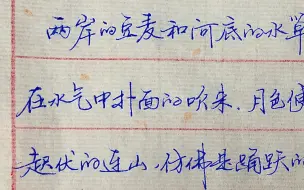 两岸的豆麦和河底的水草
在水气中扑面的吹来.月色便
起伏的连山.仿佛是踊跃的